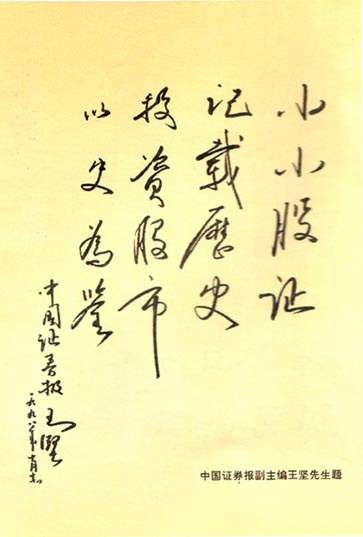 小小股证
记载歷史
投资股市
以史为鉴
中国证券报 王坚
一九九八年十月
中国证券报副主编王坚先生题